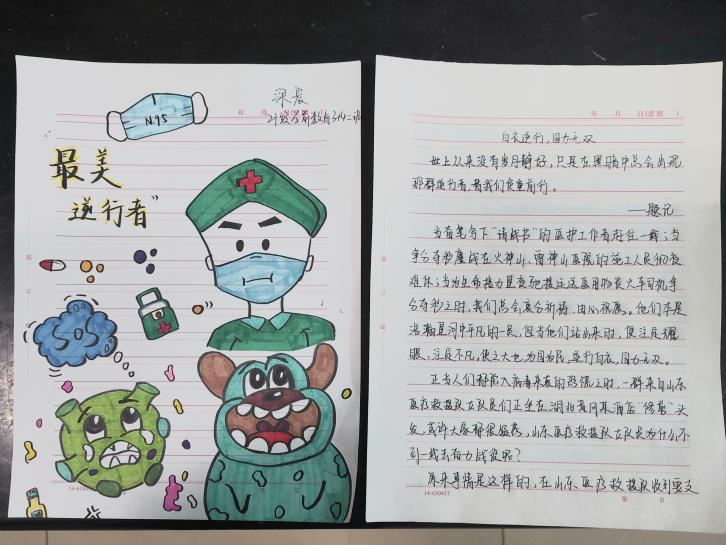 N95
深晨
年 月
21级学前教育3+4二班
最美
逆行者"
SOS
14-650437
年 月 日(星期 )
白衣逆行,国力无双
世上从来没有岁月静好,只是在黑暗中总会出现
那群逆行者,替我们负重前行。
——题记
当看笔写下"请战书"的医护工作者赶往一线;当
争分夺秒鏖战在火神山、雷神山医院的施工人员彻夜
难休;当为生命接力星夜驰援运送医用物资火车司机争
分夺秒之时,我们总会衷心祈祷,由心祝愿。他们本是
浩瀚星河中平凡的一员,但当他们站出来时,便注定耀
眼,注定不凡,使之大也为国为民,逆行白衣,国力无双。
正当人们都陷入病毒来袭的恐慌之时,一群来自山东
医疗救援队女队员们正坐在湖北黄冈某酒店"修葺"头
发,或许大家都很疑惑,山东医疗救援队女队员为什么不
到一线去奋力战疫呢?
原来事情是这样的,在山东医疗救援队收到要支
14-650437
第 页